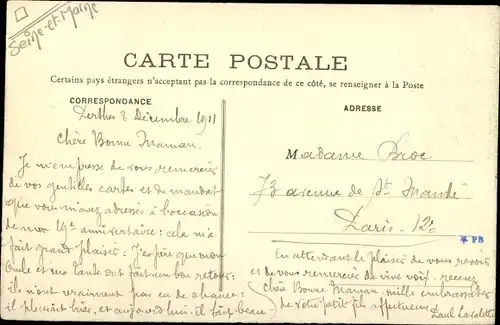 Seine-et-Marne
CARTE POSTALE
Certains pays étrangers n'acceptant pas la correspondance de ce côté, se renseigner à la Poste
CORRESPONDANCE
Perthes 8 Décembre 1911
Chère Bonne Maman,
Je m'empresse de vous remercier
de vos gentilles cartes et du mandat
que vous m'avez adressés à l'occasion
de mon anniversaire : cela m'a
fait grand plaisir. J'espère que mon
Oncle et ma tante ont fait un bon retour :
ils n'ont vraiment pas eu de chance :
il pleuvait hier, et aujourd'hui il fait beau.
ADRESSE
Madame Broc
73 avenue de St Mandé
Paris. 12e
PB
En attendant le plaisir de vous revoir
et de vous remercier de vive voix, recevez
Chère Bonne Maman, mille embrassades
de votre petit fils affectueux
Paul